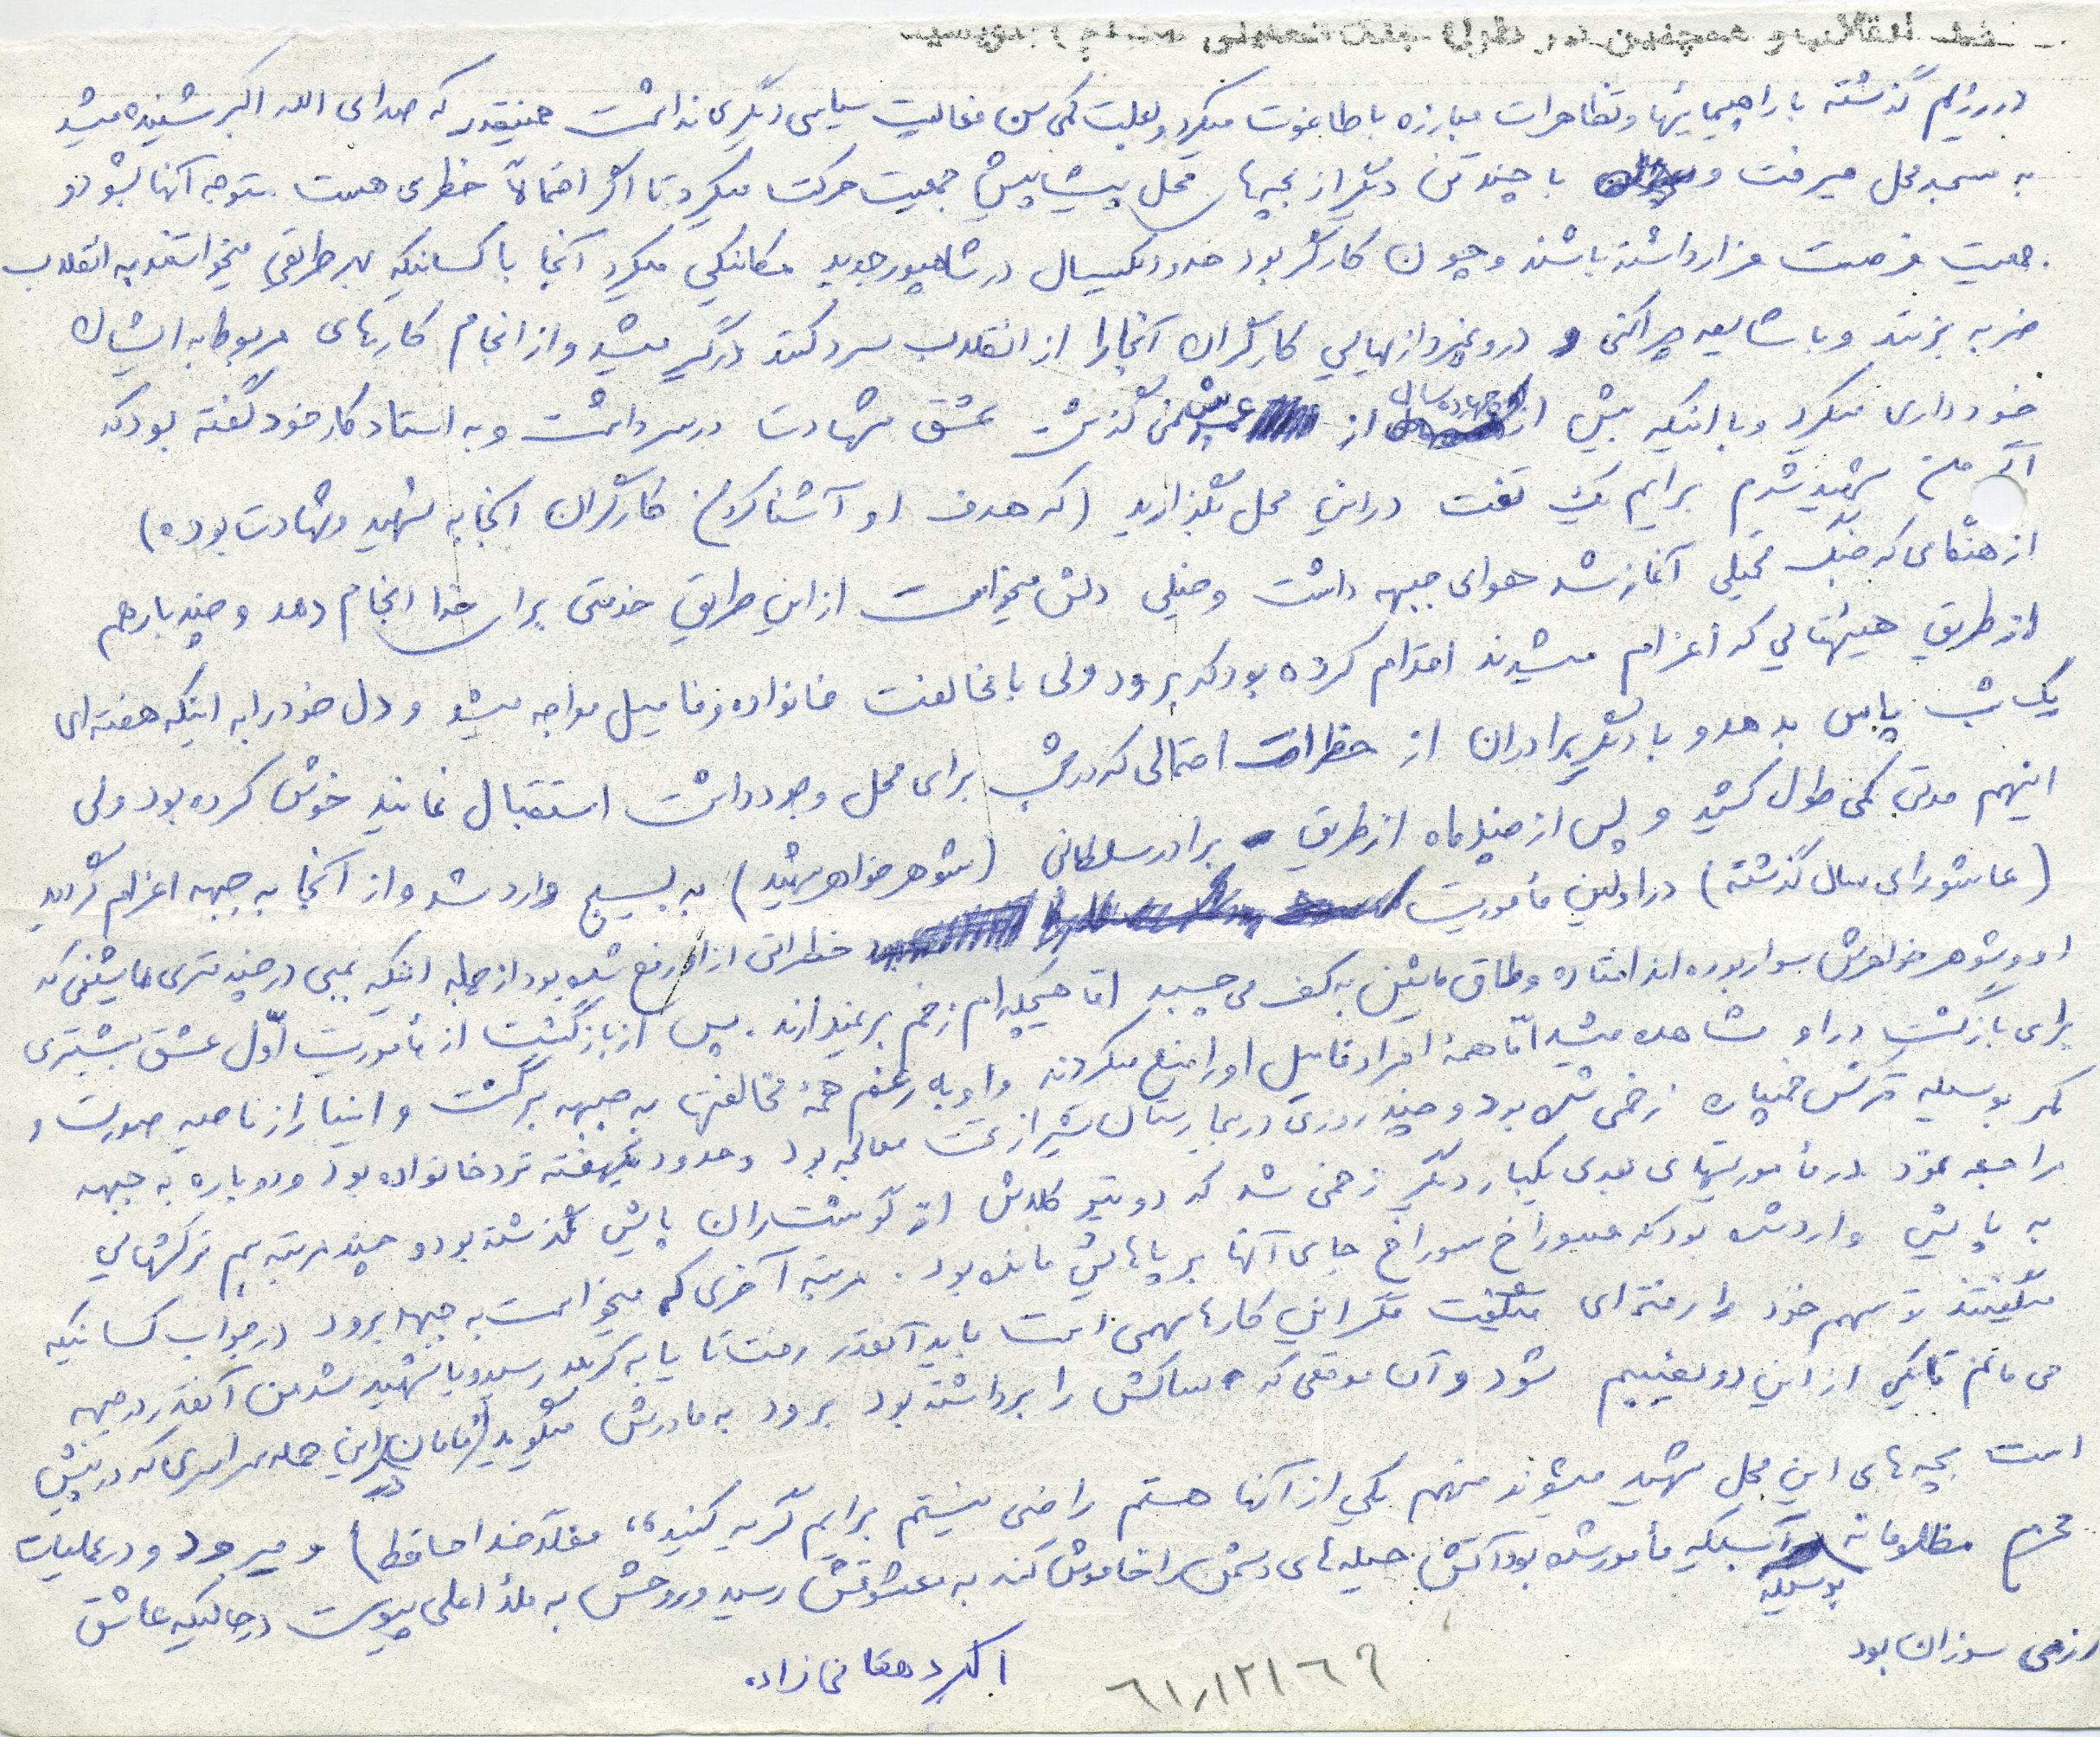 خط انقلاب و همچنین در طول جنگ تحمیلی بنویسید
در رژیم گذشته با راهپیمائیها و تظاهرات مبارزه با طاغوت میکرد و بعلت کمی سن فعالیت سیاسی دیگری نداشت همینقدر که صدای الله اکبر شنیده میشد
به مسجد محل میرفت و با چند تن دیگر از بچه های محل پیشاپیش جمعیت حرکت میکرد تا اگر احتمالاً خطری هست متوجه آنها بشود و
جمعیت فرصت فرار داشته باشند و چون کارگر بود حدود یکسال در شاهپور جدید مکانیکی میکرد آنجا با کسانیکه بهر طریقی میخواستند به انقلاب
ضربه بزنند و با شایعه پراکنی و دروغپردازیهایی کارگران آنجا را از انقلاب سرد کنند درگیر میشد و از انجام کارهای مربوط به ایشان
خودداری میکرد و با اینکه بیش از چهارده سال از عمرش نمی گذشت عشق شهادت در سر داشت و به استاد کار خود گفته بود که
اگر من شهید شدم برایم یک تخت در این محل بگذارید (که هدف او آشنا کردن کارگران آنجا به شهید و شهادت بوده)
از هنگامی که جنگ تحمیلی آغاز شد هوای جبهه داشت و خیلی دلش میخواست از این طریق خدمتی برای خدا انجام دهد و چند بار هم
از طریق هیئتهایی که اعزام میشدند اقدام کرده بود که برود ولی با مخالفت خانواده و فامیل مواجه میشد و دل خود را به اینکه هفته ای
یک شب پاس بدهد و با دیگر برادران از خطرات احتمالی که در شب برای محل وجود داشت استقبال نمایند خوش کرده بود ولی
اینهم مدتی کمی طول کشید و پس از چند ماه از طریق برادر سلطانی (شوهر خواهر شهید) به بسیج وارد شد و از آنجا به جبهه اعزام گردید
(عاشورای سال گذشته) در اولین مأموریت خطراتی از او رفع شده بود از جمله اینکه بمبی در چند متری ماشینی که
او و شوهر خواهرش سوار بوده اند افتاده و طاق ماشین به کف می چسبد اما هیچکدام زخم برنمیدارند . پس از بازگشت از مأموریت اوّل عشق بیشتری
برای بازگشت در او مشاهده میشد امّا همهٔ افراد فامیل او را منع میکردند و او به رغم همهٔ مخالفتها به جبهه برگشت و اینبار از ناحیه صورت و
کمر بوسیله ترکش خمپاره زخمی شده بود و چند روزی در بیمارستان شیراز تحت معالجه بود و حدود یکهفته نزد خانواده بود و دوباره به جبهه
مراجعه نمود در مأموریتهای بعدی یکبار دیگر زخمی شد که دو تیر کلاش از گوشت ران پایش گذشته بود و چند مرتبه هم ترکشهایی
به پایش وارد شده بود که سوراخ سوراخ جای آنها بر پاهایش مانده بود . مرتبه آخری که میخواست به جبهه برود در جواب کسانیکه
میگفتند تو سهم خود را رفته ای میگفت مگر این کارها سهمی است باید آنقدر رفت تا یا به کربلا رسید و یا شهید شد من آنقدر در جبهه
می مانم تا یکی از این دو نصیبم شود و آن موقعی که ساکش را برداشته بود برود به مادرش میگوید (مامان در این حمله سراسری که در پیش
است بچه های این محل شهید میشوند منهم یکی از آنها هستم راضی نیستم برایم گریه کنید،، فعلاً خدا حافظ) و میرود و در عملیات
محرم مظلومانه بوسیله آبیکه مأمور شده بود آتش حیله های دشمن را خاموش کند به معشوقش رسید و روحش به ملأ اعلی پیوست درحالیکه عاشق
رزمی سوزان بود
اکبر دهقانی زاده